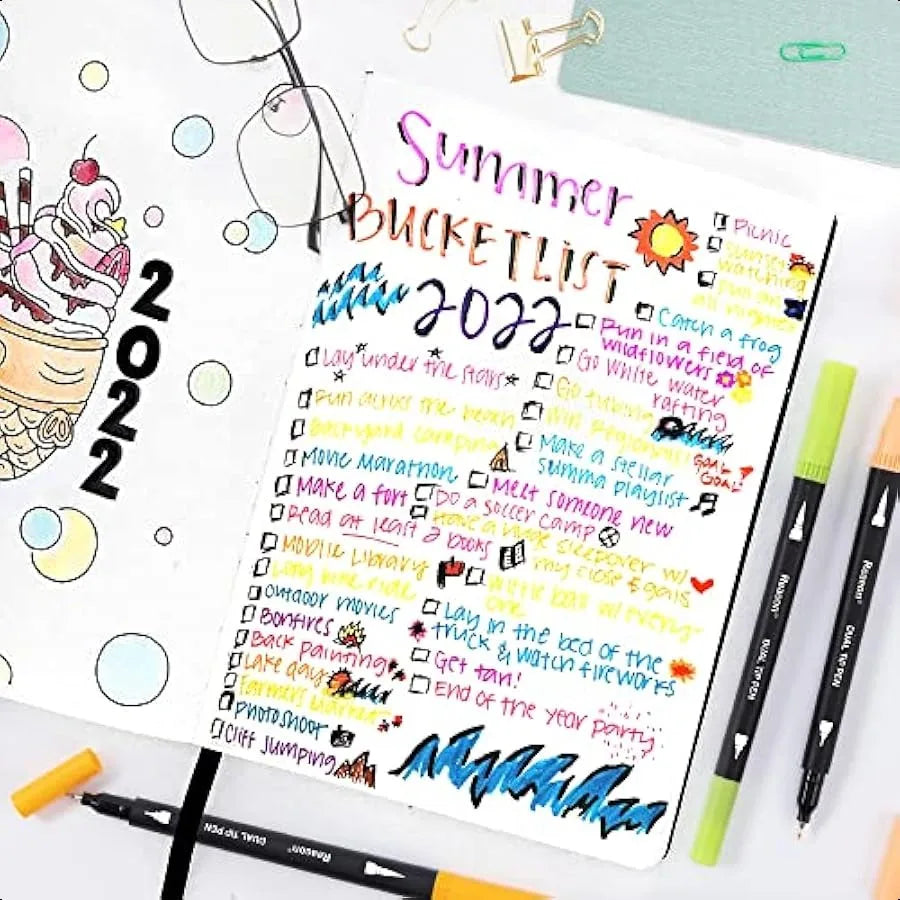 2022
Summer
BUCKETLIST
2022
Picnic
Sunset
watching
pull an
all nighter
Catch a frog
Run in a field of
wildflowers
Go white water
rafting
Go tubing
Win Regionals!
GOAL
GOAL!
Make a stellar
summa playlist
Meet someone new
Do a soccer camp
Have a huge sleepover w/
my close
gals
Water
w/ every-
one
Lay in the bed of the
truck & watch fireworks
Get tan!
End of the year party
Lay under the stars
Run across the beach
Backyard camping
Movie Marathon
Make a fort
Read at least 2 books
Mobile Library
Long bike ride
outdoor movies
Bonfires
Back painting
Lake day
Farmers Market
photoshoot
Cliff Jumping
Reaeon DUAL TIP PEN
Reaeon DUAL TIP PEN
DUAL TIP PEN Reaeon